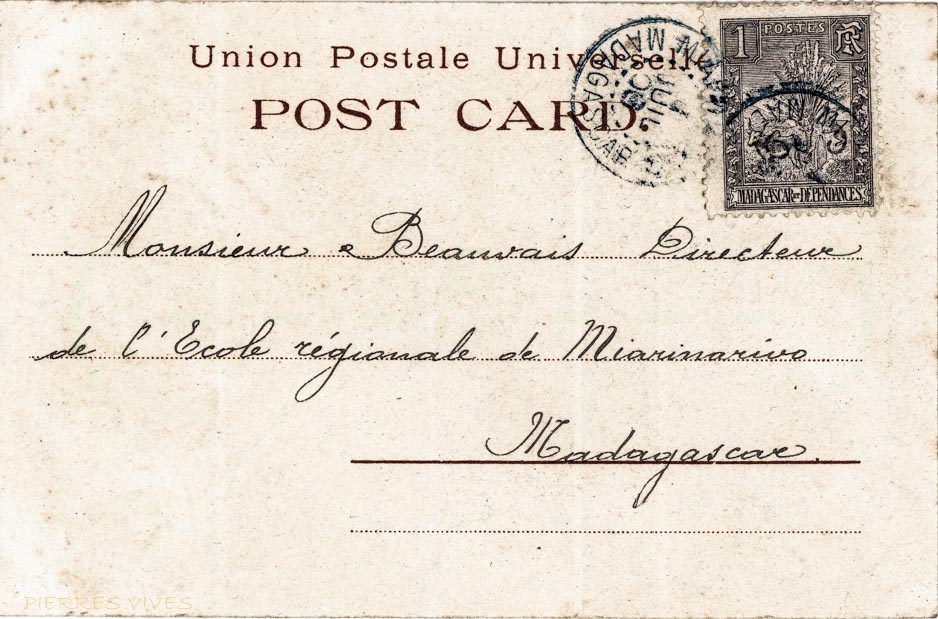 Union Postale Universelle
POST CARD.
MADAGASCAR
JUIL
1 POSTES RF
MADAGASCAR ET DÉPENDANCES
Monsieur Beauvais Directeur
de l'Ecole régionale de Miarinarivo
Madagascar.
PIERRES VIVES